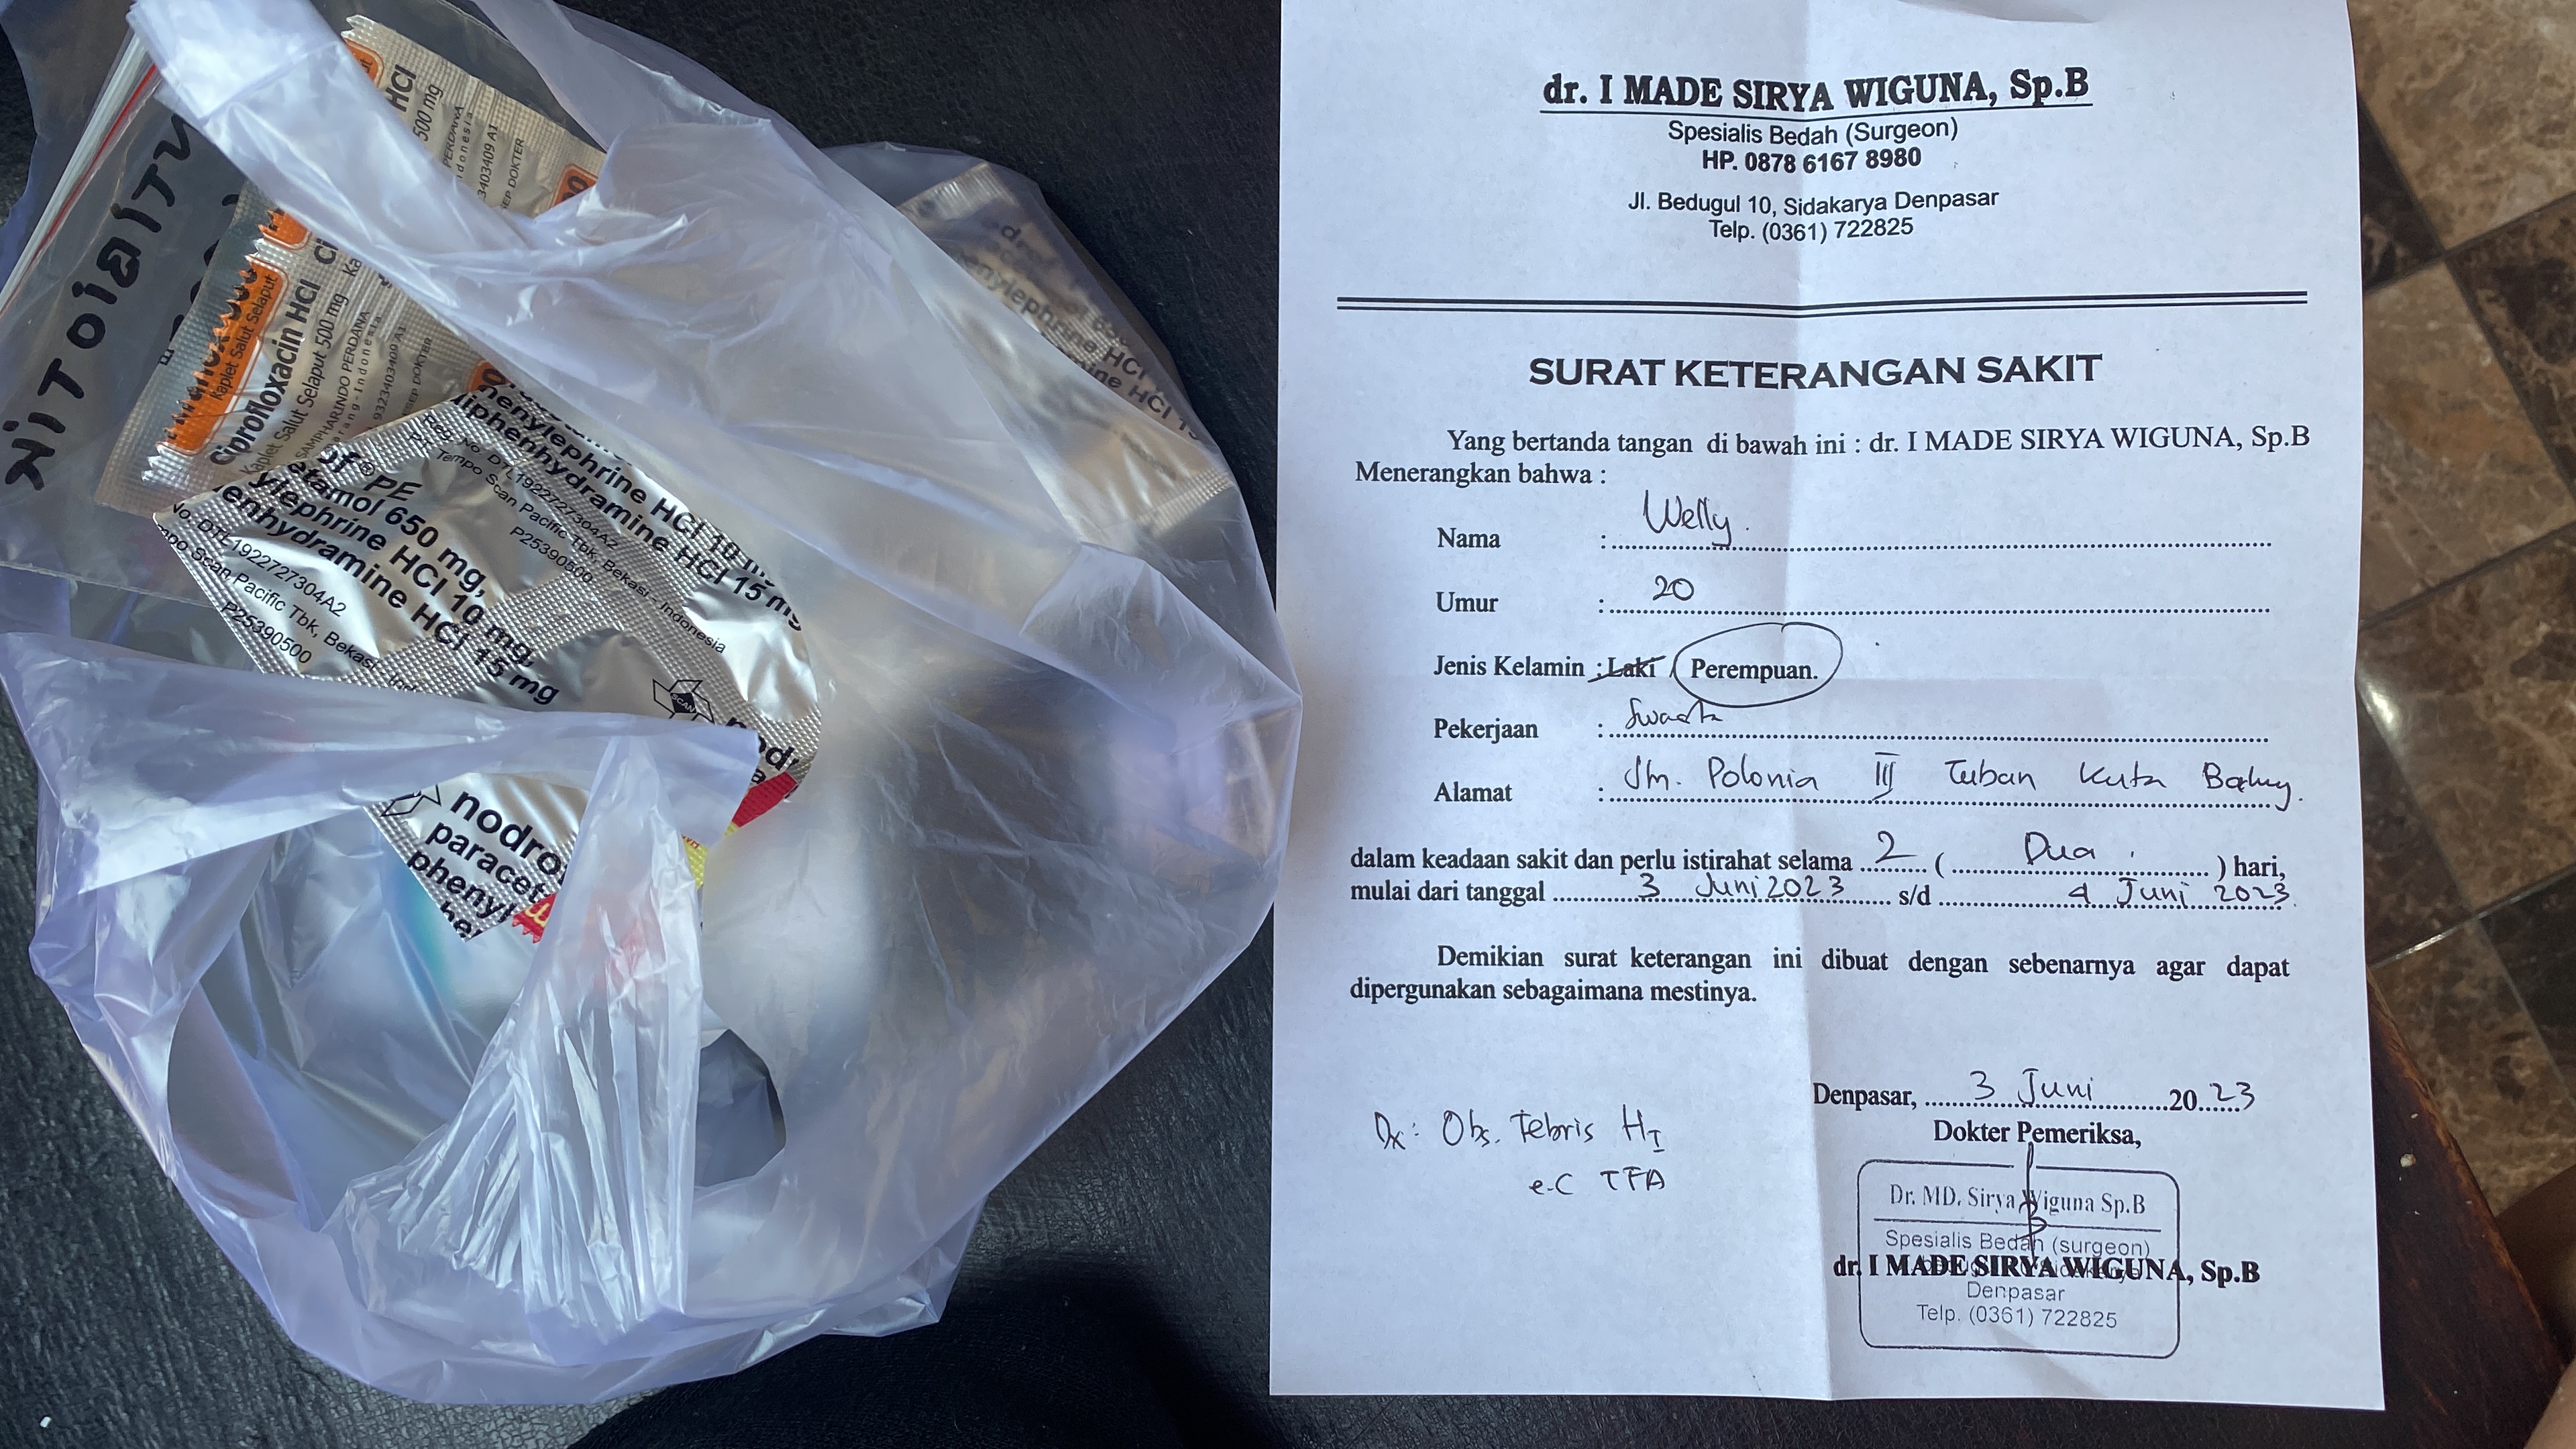 ANTIBIOTIK
Kaplet Salut Selaput
Ciprofloxacin HCl
Kaplet Salut Selaput 500 mg
SAMPHARINDO PERDANA
arang-Indonesia
9323403409 A1
ESEP DOKTER
HCl
500 mg
PERDANA
donesia
3403409 A1
SEP DOKTER
PE
etamol 650 mg,
enylephrine HCl 10 mg,
enhydramine HCl 15 mg
No. DTL1922727304A2
Tempo Scan Pacific Tbk, Bekasi - Indonesia
P25390500
enylephrine HCl 10 m
iphenhydramine HCl 15 mg
nodro
paracet
phenyl
dr. I MADE SIRYA WIGUNA, Sp.B
Spesialis Bedah (Surgeon)
HP. 0878 6167 8980
Jl. Bedugul 10, Sidakarya Denpasar
Telp. (0361) 722825
SURAT KETERANGAN SAKIT
Yang bertanda tangan di bawah ini : dr. I MADE SIRYA WIGUNA, Sp.B
Menerangkan bahwa :
Nama : Welly.
Umur : 20
Jenis Kelamin : Laki / Perempuan.
Pekerjaan : Swasta
Alamat : Jln. Polonia III Tuban Kuta Badung.
dalam keadaan sakit dan perlu istirahat selama 2 ( Dua ) hari,
mulai dari tanggal 3 Juni 2023 s/d 4 Juni 2023.
Demikian surat keterangan ini dibuat dengan sebenarnya agar dapat
dipergunakan sebagaimana mestinya.
Denpasar, 3 Juni 2023
Dokter Pemeriksa,
Dx : Obs. Febris HI
e.c TFA
Dr. MD. Sirya Wiguna Sp.B
Spesialis Bedah (surgeon)
dr. I MADE SIRYA WIGUNA, Sp.B
Denpasar
Telp. (0361) 722825